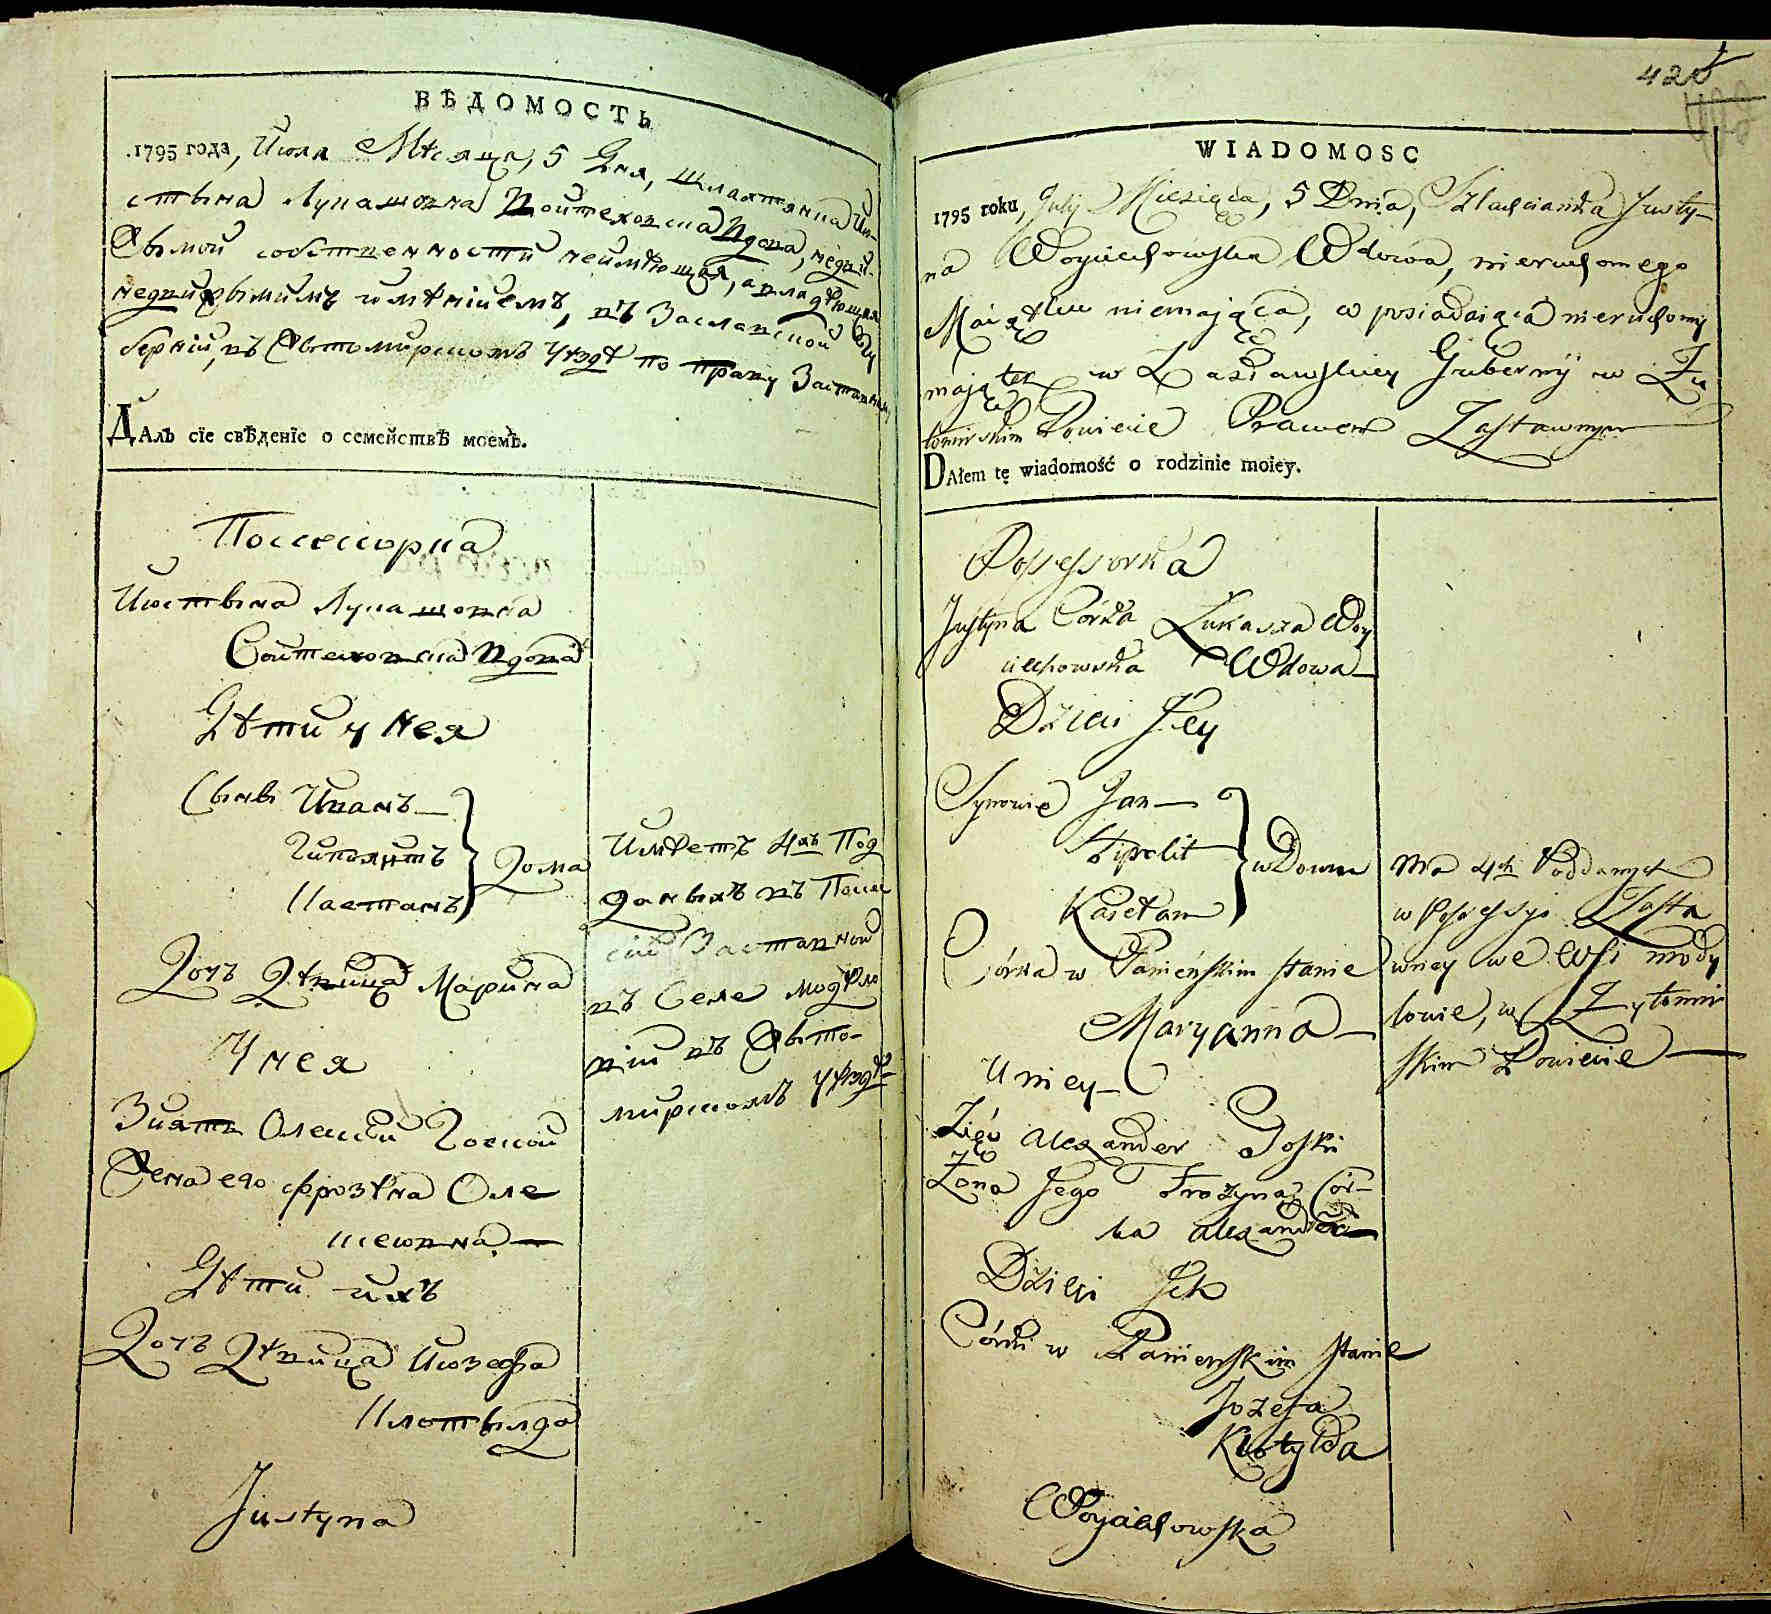 ВѢДОМОСТЬ
1795 года, Июля Мѣсяца, 5 Дня, шляхтянка Ию-
стына Лукашовна Войтеховска вдова, недви-
жымой собственности неимѣющая, а владѣющая
недвижымимъ имѣнiемъ, въ Заславской Гу
бернiи, въ Жытомирскомъ уѣздѣ по праву Заставному
ДАлъ сїе свѣденїе о семействѣ моемъ.
Поссесорка
Июстына Лукашовна
Войтеховска вдова
Дѣти у нея
Сынвi Иванъ
Гиполитъ
Каетанъ
Дома
Дочъ Дѣвица Марiина
У нея
Зиять Олексѣй Гоской
Жена его Фрозѣна Оле
ксеювна
Дѣти ихъ
Дочъ Дѣвица Июзефа
Клотылда
Имѣетъ 4хъ Под
даныхъ въ Посес
сiи Заставной
въ Селе Модѣло
вiи въ Жыто-
мирскомъ уѣздѣ
Justyna
420
WIADOMOSC
1795 roku, July Miesiąca, 5 Dnia, Szlachcianka Justy-
na Woyciechowska Wdowa, nieruchomego
Maiątku niemająca, a posiadaiąca nieruchomy
mająteк w Zasławskiey Gubernij w Ży
tomirskim Powiecie Prawem Zastawnym
DAłem tę wiadomość o rodzinie moiey.
Possessorka
Justyna Córka Łukasza Woy
ciechowska Wdowa
Dzieci Jey
Synowie Jan
Hipolit
Kaietan
w Domu
Córka w Panieńskim stanie
Maryanna
U niey
Zięć Alexander Goski
Żona Jego Frozyna Cór-
ka Alexandra
Dzieci Jch
Córki w Panienskim stanie
Jozefa
Klotylda
Ma 4ch Poddanych
w Possessyi Zasta
wney we Wsi Mody
lowie, w Zytomir
skim Powiecie
Woyciechowska